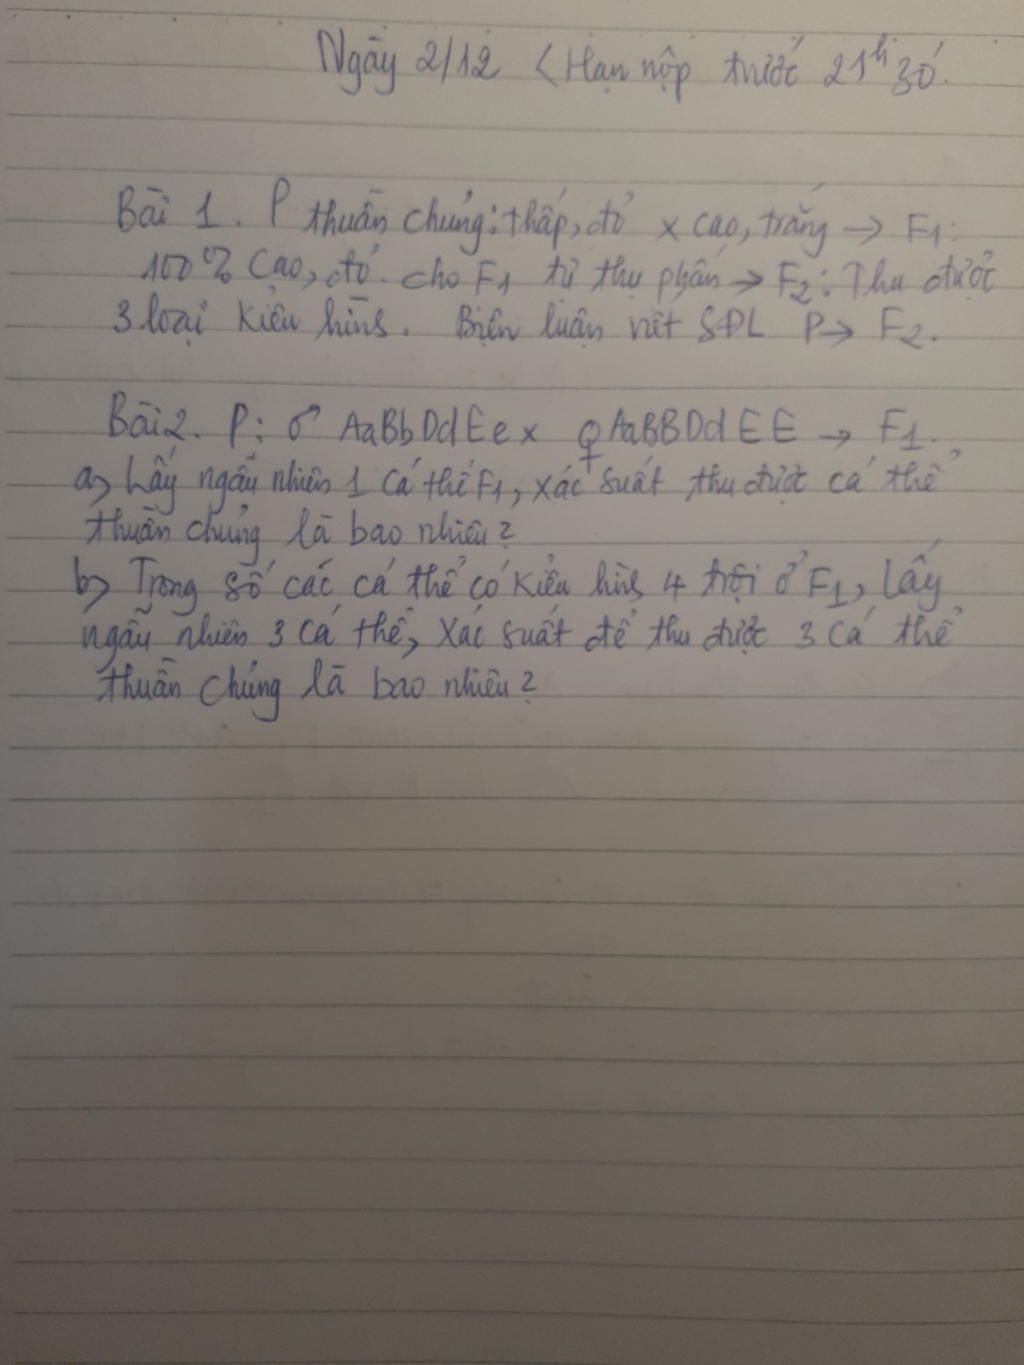 Ngày 2/12 (Hạn nộp trước 21h30'
Bài 1. P thuần chủng: thấp, đỏ x cao, trắng → F1:
100% Cao, đỏ. cho F1 tự thụ phấn → F2: Thu được
3 loại kiểu hình. Biện luận viết SĐL P → F2.
Bài 2. P: ♂ AaBbDdEe x ♀ AaBBDdEE → F1.
a) Lấy ngẫu nhiên 1 cá thể F1, xác suất thu được cá thể
thuần chủng là bao nhiêu?
b) Trong số các cá thể có kiểu hình 4 trội ở F1, lấy
ngẫu nhiên 3 cá thể, xác suất để thu được 3 cá thể
thuần chủng là bao nhiêu?